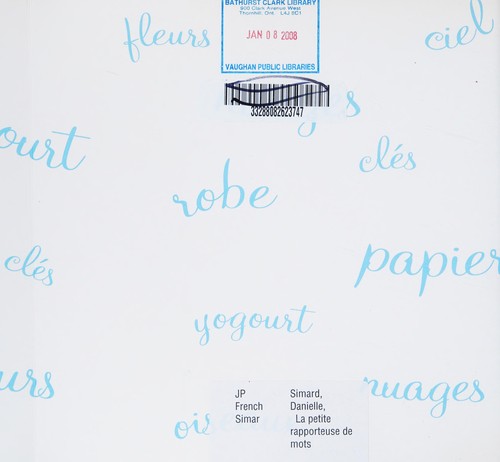 BATHURST CLARK LIBRARY
900 Clark Avenue West
Thornhill, Ont L4J 8C1
JAN 08 2008
VAUGHAN PUBLIC LIBRARIES
33288082623747
fleurs
ciel
ourt
clés
robe
clés
papier
yogourt
urs
nuages
ois
JP
French
Simar
Simard,
Danielle,
La petite
rapporteuse de
mots